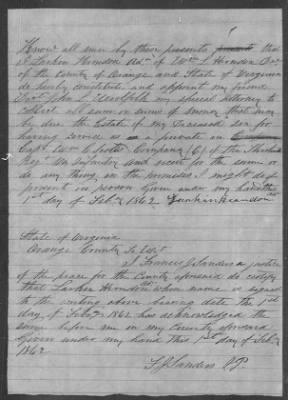 Know all men by these presents that
I Larkin Herndon Adr. of Wm L Herndon Decd
of the County of Orange and State of Virginia
do hereby constitute and appoint my friend
John L my special attorney to
collect all sum or sums of money that may
be due the Estate of my Deceased son for
having served as a private in
Capt. Wm C Company (C) of the
Regt Va Infantry and receipt for the same or
do any thing in the premises I might do if
present in person Given under my hand this
1st day of Feby 1862 Larkin Herndon
State of Virginia
Orange County To Wit
I Francis J Sanders a justice
of the peace for the County aforesaid do certify
that Larkin Herndon whose name is signed
to the writing above bearing date the 1st
day of Feby 1862 has acknowledged the
same before me in my County aforesaid
Given under my hand this 1st day of Feby
1862
F J Sanders J.P.